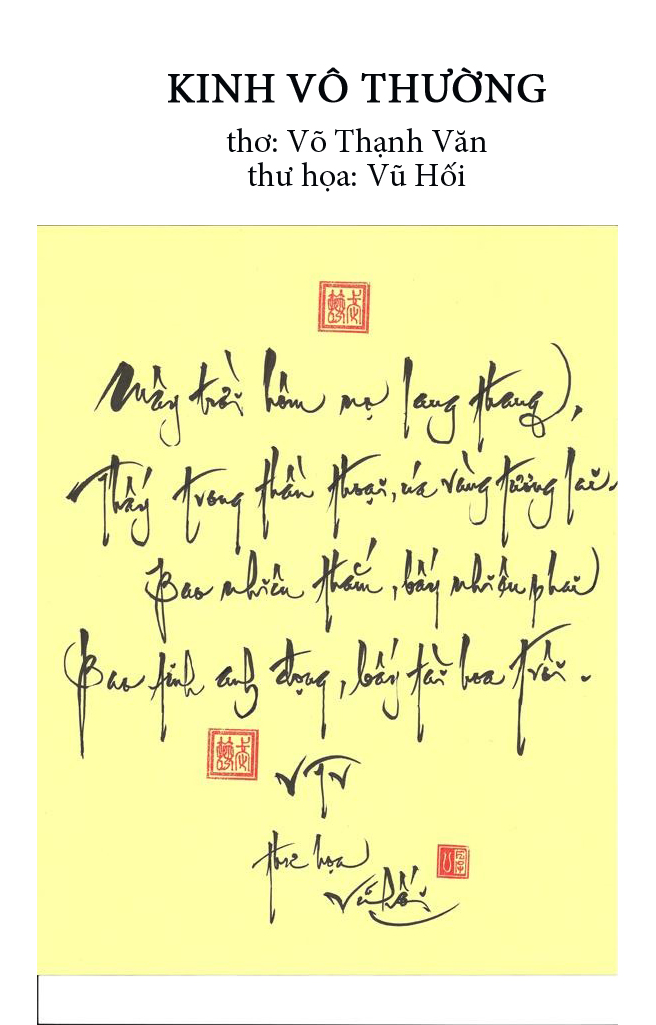 KINH VÔ THƯỜNG
thơ: Võ Thạnh Văn
thư họa: Vũ Hối
Mây trời hôm nọ lang thang,
Thấy trong thần thoại, úa vàng tương lai.
Bao nhiêu thắm, bấy nhiêu phai
Bao tinh anh đọng, bấy tài hoa trôi.
VTV
thư họa
Vũ Hối